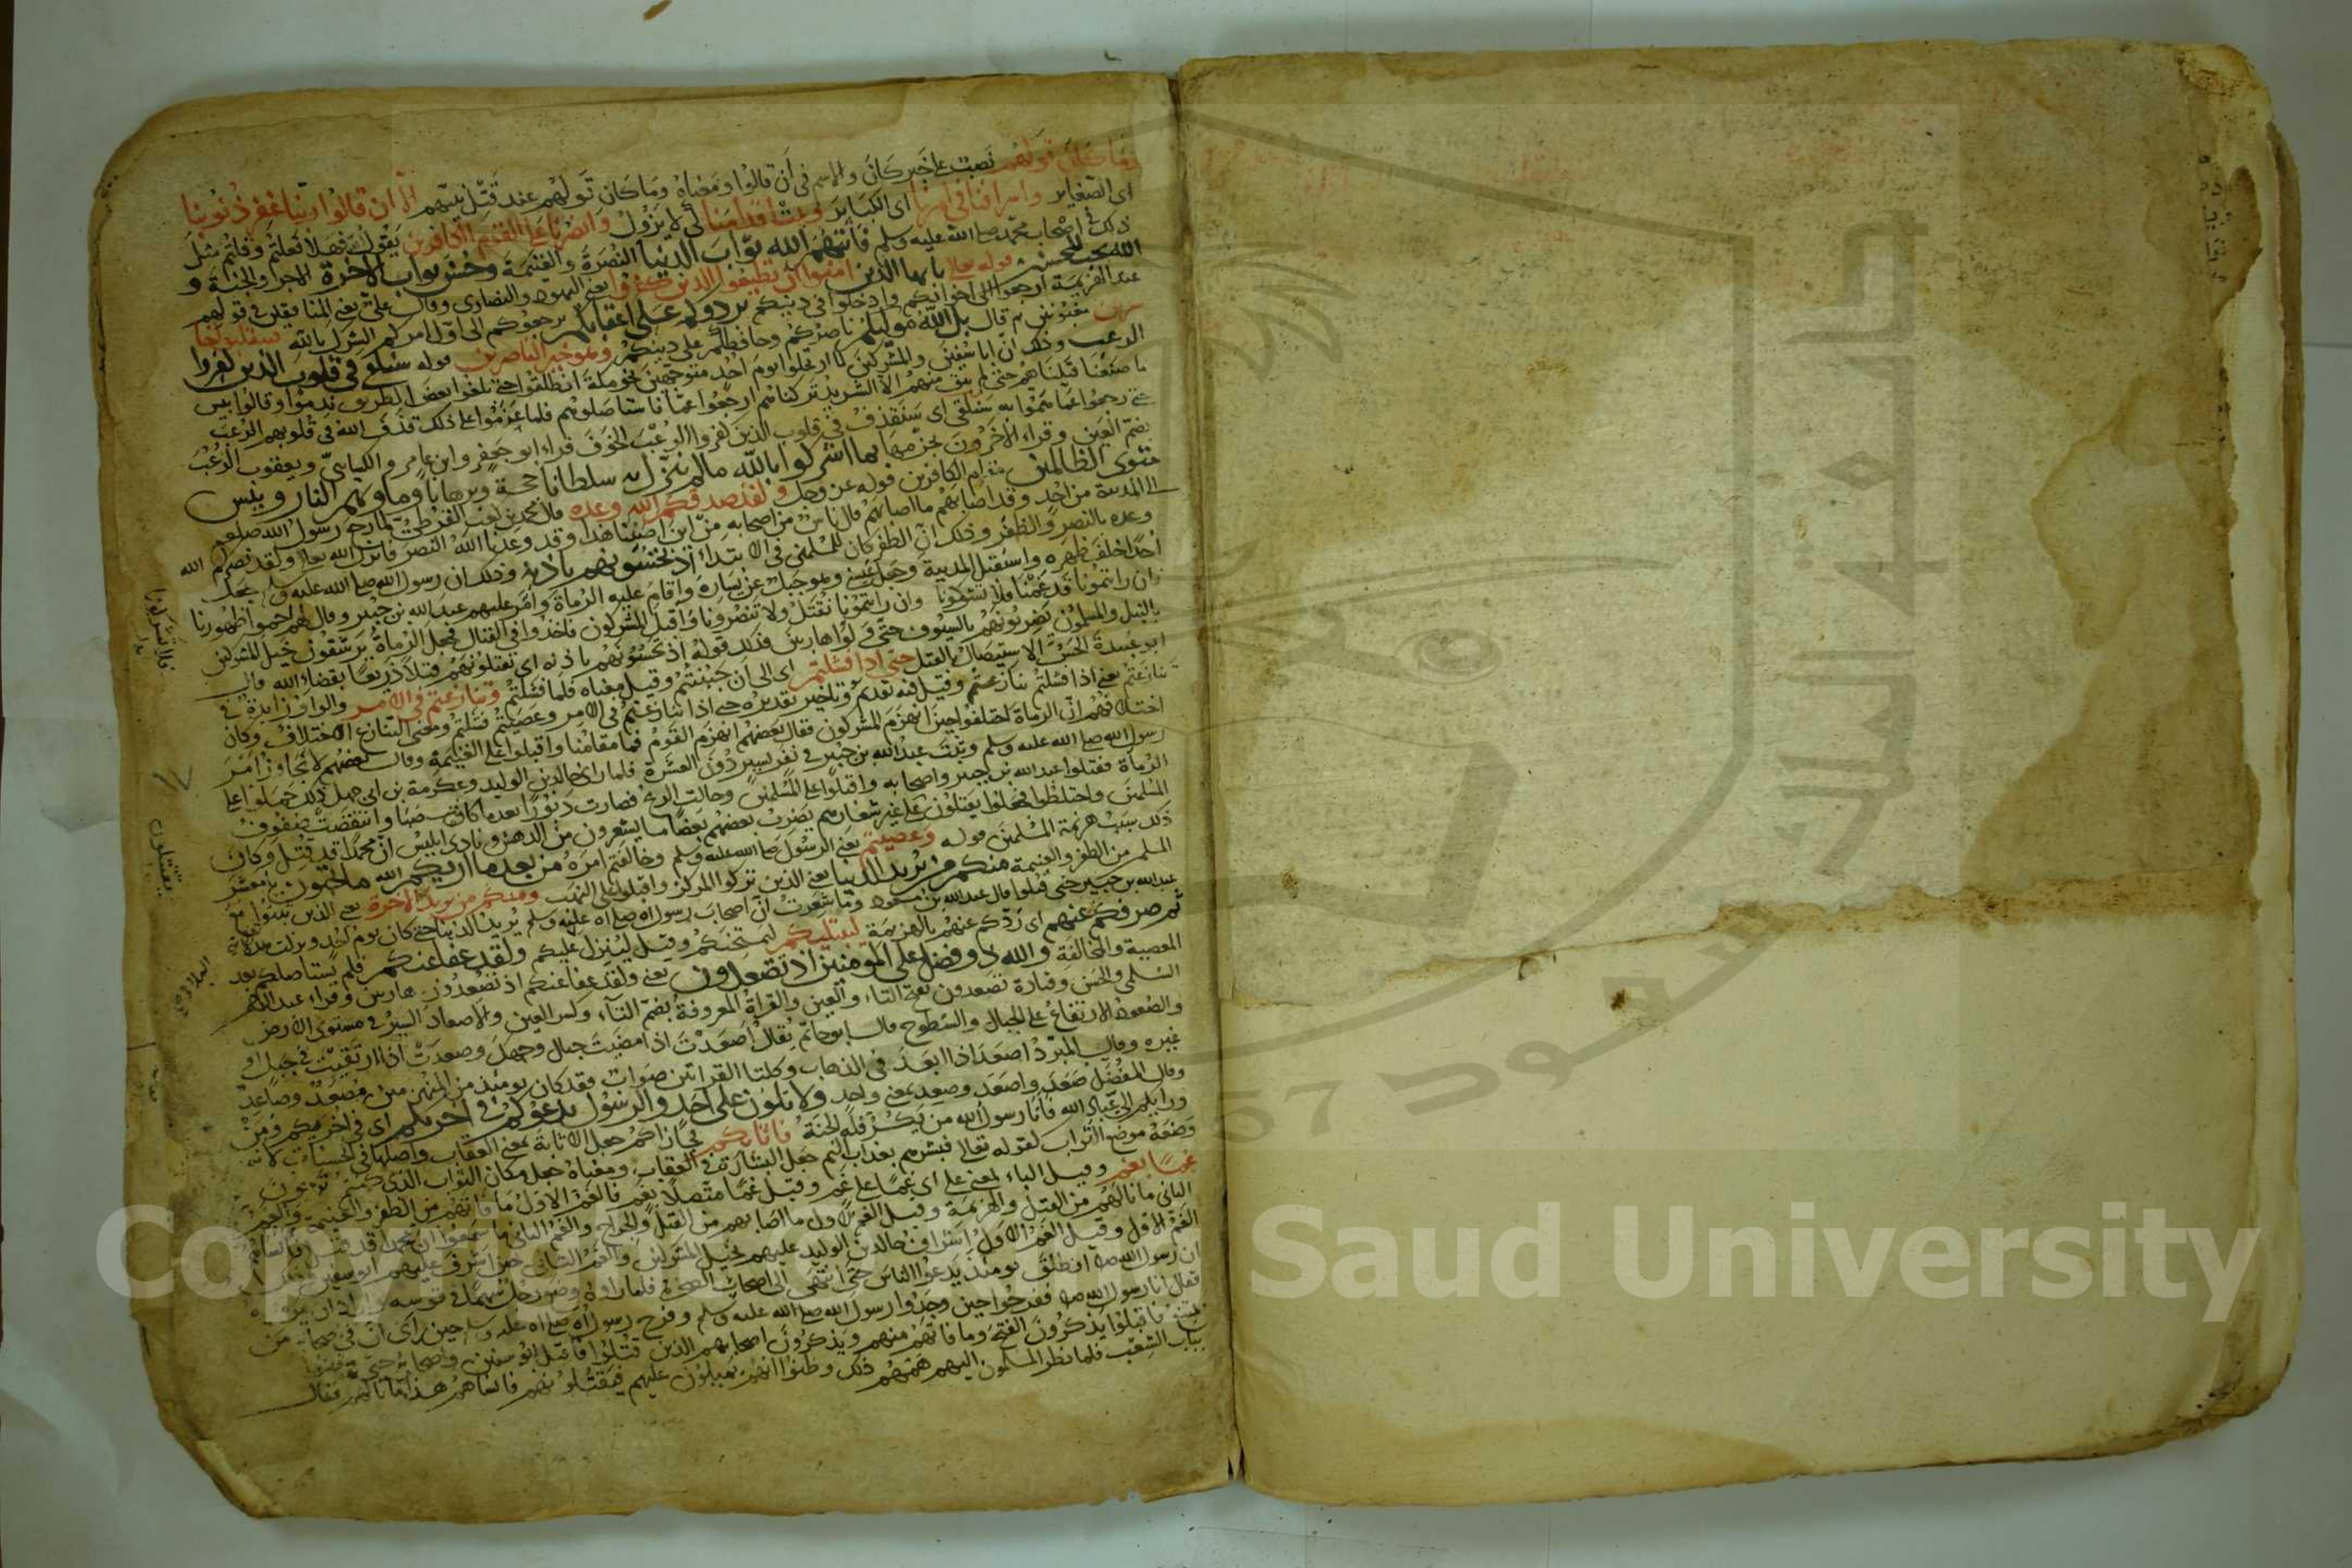 وما كان قولهم نصب على خبر كان والاسم في أن قالوا ومعناه وما كان قولهم عند قتل نبيهم الا ان قالوا ربنا اغفر لنا ذنوبنا
اى الصغاير واسرافنا في امرنا اى الكباير وثبت اقدامنا كى لا يزول وانصرنا على القوم الكافرين يقول فهلا فعلتم وقلتم مثل
ذلك يا اصحاب محمد صلى الله عليه وسلم فأتيهم الله ثواب الدنيا النصرة والغنيمة وحسن ثواب الاخرة الاجر والجنة و
الله يحب المحسنين قوله تعالى يا يها الذين امنوا ان تطيعوا الذين كفروا يعنى اليهود والنصارى وقال على يعنى المنافقين في قولهم
عند الهزيمة ارجعوا الى اخوانكم وادخلوا في دينكم يردوكم على اعقابكم يرجعوكم الى اول امركم الشرك بالله فتنقلبوا خا
سرين مغبونين ثم قال بل الله موليكم ناصركم وحافظكم على دينكم وهو خير الناصرين قوله سنلقى في قلوب الذين كفروا
الرعب وذلك ان ابا سفين والمشركين لما ارتحلوا يوم احد متوجهين نحو مكة انطلقوا حتى بلغوا بعض الطريق ندموا وقالوا بيس
ما صنعنا قتلناهم حتى لم يبق منهم الا الشريد تركناهم ارجعوا فاستاصلوهم فلما عزموا على ذلك قذف الله في قلوبهم الرعب
حتى رجعوا عما هموا به سنلقى اى سنقذف في قلوب الذين كفروا الرعب الخوف قراء ابو جعفر وابن عامر والكسائى ويعقوب الرعب
بضم العين وقراء الاخرون بجزمها بما اشركوا بالله مالم ينزل به سلطانا حجة وبرهانا وماويهم النار وبئس
مثوى الظالمين مقام الكافرين قوله عز وجل ولقد صدقكم الله وعده قال محمد بن كعب القرظى لما رجع رسول الله صلعم
الى المدينة من احد وقد اصابهم ما اصابهم قال ناس من اصحابه من اين اصبنا هذا وقد وعدنا الله النصر فانزل الله تعالى ولقد صدقكم الله
وعده بالنصر والظفر وذلك ان الظفر كان للمسلمين في الابتداء اذ تحسونهم باذنه وذلك ان رسول الله صلى الله عليه وسلم جعل
احدا خلف ظهره واستقبل المدينة وجعل عينين وهو جبل عن يساره واقام عليه الرماة وامر عليهم عبد الله بن جبير وقال لهم احموا ظهورنا
فان رايتمونا قد غنمنا فلا تشركونا وان رايتمونا نقتل ولا تنصرونا فاقبل المشركون فاخذوا في القتال فجعل الرماة يرشقون خيل المشركين
بالنبل والمسلمون يضربونهم بالسيوف حتى ولوا هاربين فذلك قوله اذ تحسونهم باذنه اى تقتلونهم قتلا ذريعا بقضاء الله قال
ابو عبيدة الحس الاستيصال بالقتل حتى اذا فشلتم اى الى ان جبنتم وقيل معناه فلما فشلتم وتنازعتم في الامر والواو زايدة في
تنازعتم يعنى اذا فشلتم تنازعتم وقيل فيه تقديم وتاخير تقديره حتى اذا تنازعتم في الامر وعصيتم فشلتم ومعنى التنازع الاختلاف وكان
اختلافهم ان الرماة اختلفوا حين انهزم المشركون فقال بعضهم انهزم القوم فما مقامنا واقبلوا على الغنيمة وقال بعضهم لا تجاوزوا امر
رسول الله صلى الله عليه وسلم وثبت عبد الله بن جبير في نفر يسير دون العشرة فلما راى خالد بن الوليد وعكرمة بن ابى جهل ذلك حملوا على
الرماة فقتلوا عبد الله بن جبير واصحابه واقبلوا على المسلمين وحالت الريح فصارت دبورا بعد ما كانت صبا وانتقضت صفوف
المسلمين واختلطوا فجعلوا يقتلون على غير شعارهم يضرب بعضهم بعضا ما يشعرون من الدهش ونادى ابليس ان محمدا قد قتل وكان
ذلك سبب هزيمة المسلمين قوله وعصيتم يعنى الرسول صلى الله عليه وسلم وخالفتم امره من بعد ما اريكم الله ما تحبون يا معشر
المسلمين من الظفر والغنيمة منكم من يريد الدنيا يعنى الذين تركوا المركز واقبلوا على النهب ومنكم من يريد الاخرة يعنى الذين ثبتوا مع
عبد الله بن جبير حتى قتلوا قال عبد الله بن مسعود وما شعرت ان اصحاب رسول الله صلى الله عليه وسلم يريد الدنيا حتى كان يوم احد ونزلت هذه الاية
ثم صرفكم عنهم اى ردكم عنهم بالهزيمة ليبتليكم ليمتحنكم وقيل لينزل عليكم ولقد عفا عنكم فلم يستاصلكم بعد
المعصية والمخالفة والله ذو فضل على المومنين اذ تصعدون يعنى ولقد عفا عنكم اذ تصعدون هاربين وقراء عبد الرحمن
السلمى والحسن وقتادة تصعدون بفتح التاء والعين والقراة المعروفة بضم التاء وكسر العين والاصعاد السير في مستوى الارض
والصعود الارتفاع على الجبال والسطوح قال ابو حاتم يقال اصعدت اذا مضيت حيال وجهك وصعدت اذا ارتقيت في جبل او
غيره وقال المبرد اصعد اذا ابعد في الذهاب وكلتا القراتين صواب فقد كان يومئذ من المنهزمين مصعد وصاعد
وقال المفضل صعد واصعد وصعد بمعنى واحد ولا تلون على احد والرسول يدعوكم في اخريكم اى في اخركم ومن
ورايكم الى عباد الله فانا رسول الله من يكر فله الجنة فاثابكم فجازاكم جعل الاثابة بمعنى العقاب واصلها في الحسنات لانه
وضعه موضع الثواب لقوله تعالى فبشرهم بعذاب اليم جعل البشارة في العقاب ومعناه جعل مكان الثواب الذى كنتم ترجون
غما بغم وقيل الباء بمعنى على اى غما على غم وقيل غما متصلا بغم فالغم الاول ما فاتهم من الظفر والغنيمة والغم
الثانى ما نالهم من القتل والهزيمة وقيل الغم الاول ما اصابهم من القتل والجراح والغم الثانى ما سمعوا ان محمدا قد قتل فانساهم
الغم الاول وقيل الغم الاول اشراف خالد بن الوليد عليهم بخيل المشركين والغم الثانى حين اشرف عليهم ابو سفين
ان رسول الله صلى انطلق يومئذ يدعوا الناس حتى انتهى الى اصحاب الصخرة فلما راوه وضع رجل سهما في قوسه واراد ان يرميه
فقال انا رسول الله ففرحوا حين وجدوا رسول الله صلى الله عليه وسلم وفرح رسول الله صلى الله عليه وسلم حين راى ان في اصحابه من
يمتنع فاقبلوا يذكرون الفتح وما فاتهم منهم ويذكرون اصحابهم الذين قتلوا فاقبل ابو سفين واصحابه حتى وقفوا
بباب الشعب فلما نظر المسلمون اليهم همهم ذلك وظنوا انهم يميلون عليهم فيقتلونهم فانساهم هذا ما نالهم فقال
فلا تشركونا
يقتلون
Saud University